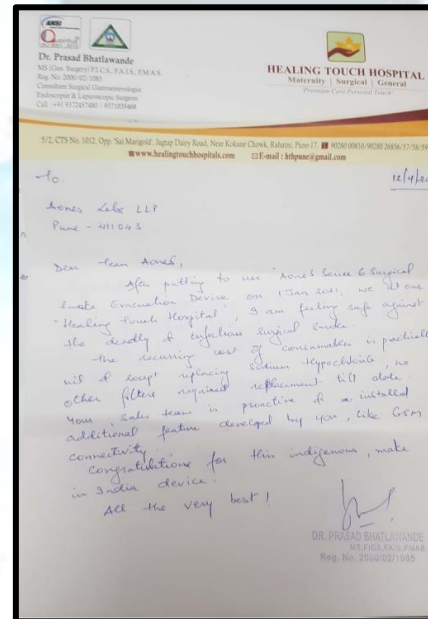 ANSI
Quantum
ISO 9001:2015
Dr. Prasad Bhatlawande
MS (Gen. Surgery) F.I.C.S., F.A.I.S., F.M.A.S.
Reg. No. 2000/02/1085
Consultant Surgical Gastroenterologist
Endoscopist & Laparoscopic Surgeon
Cell : +91 9372457480 / 9371035468
HEALING TOUCH HOSPITAL
Maternity | Surgical | General
'Premium Care Personal Touch'
5/2, CTS No. 1012, Opp. 'Sai Marigold', Jagtap Dairy Road, Near Kokane Chowk, Rahatni, Pune-17. 90280 00816/90280 26856/57/58/59
www.healingtouchhospitals.com E-mail : hthpune@gmail.com
To.
12/4/20
Aones Labs LLP
Pune - 411043
Dear Team Aones,
After putting to use "Aones Secure 6 Surgical
Smoke Evacuation Device on 1 Jan 2021, we at our
"Healing Touch Hospital, I am feeling safe against
the deadly & infectious surgical smoke.
the recurring cost of consumables is practically
nil & except replacing Sodium Hypochlorite, no
other filters required replacement till date.
Your Sales team is proactive & installed
additional feature developed by you, like GSM
connectivity.
Congratulations for this indigenous, make
in India device.
All the very best!
DR. PRASAD BHATLAWANDE
MS,FICS,FAIS,FMAS
Reg. No. 2000/02/1085